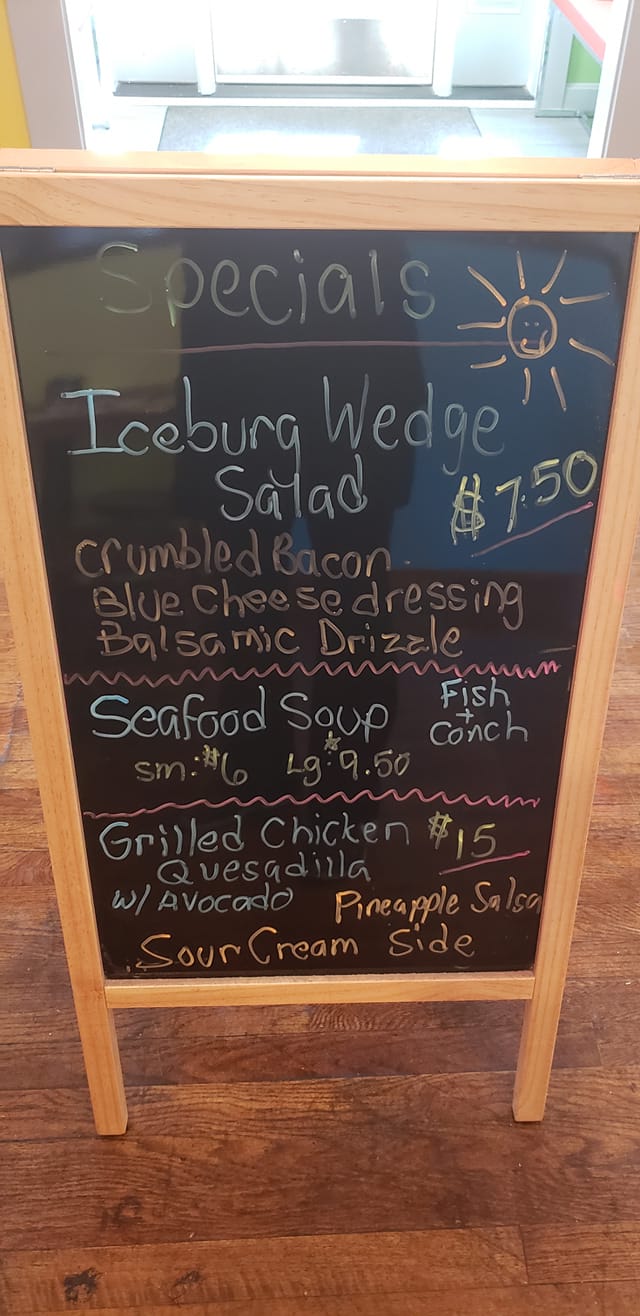 Specials
Iceburg Wedge
Salad $7.50
Crumbled Bacon
Blue Cheese dressing
Balsamic Drizzle
Seafood Soup Fish + conch
sm: $6 Lg: 9.50
Grilled Chicken $15
Quesadilla
w/ Avocado Pineapple Salsa
Sour Cream Side